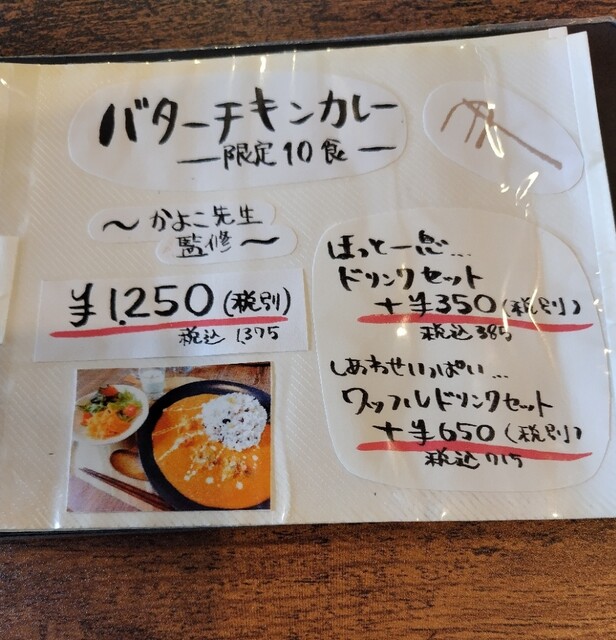 バターチキンカレー
ー限定10食ー
〜かよこ先生
監修〜
¥1,250(税別)
税込 1375
ほっと一息…
ドリンクセット
+¥350(税別)
税込 385
しあわせいっぱい…
ワッフルドリンクセット
+¥650(税別)
税込 715